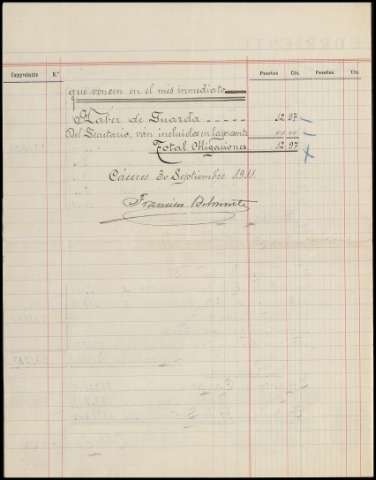 Comprobante N.º Pesetas Cts. Pesetas Cts.
que vencen en el mes inmediato
Haber de Guarda 52 97
Del Secretario, van incluidos en la presente
Total Obligaciones 52 97
Cáceres 30 Septiembre 1911
Francisco Belmonte